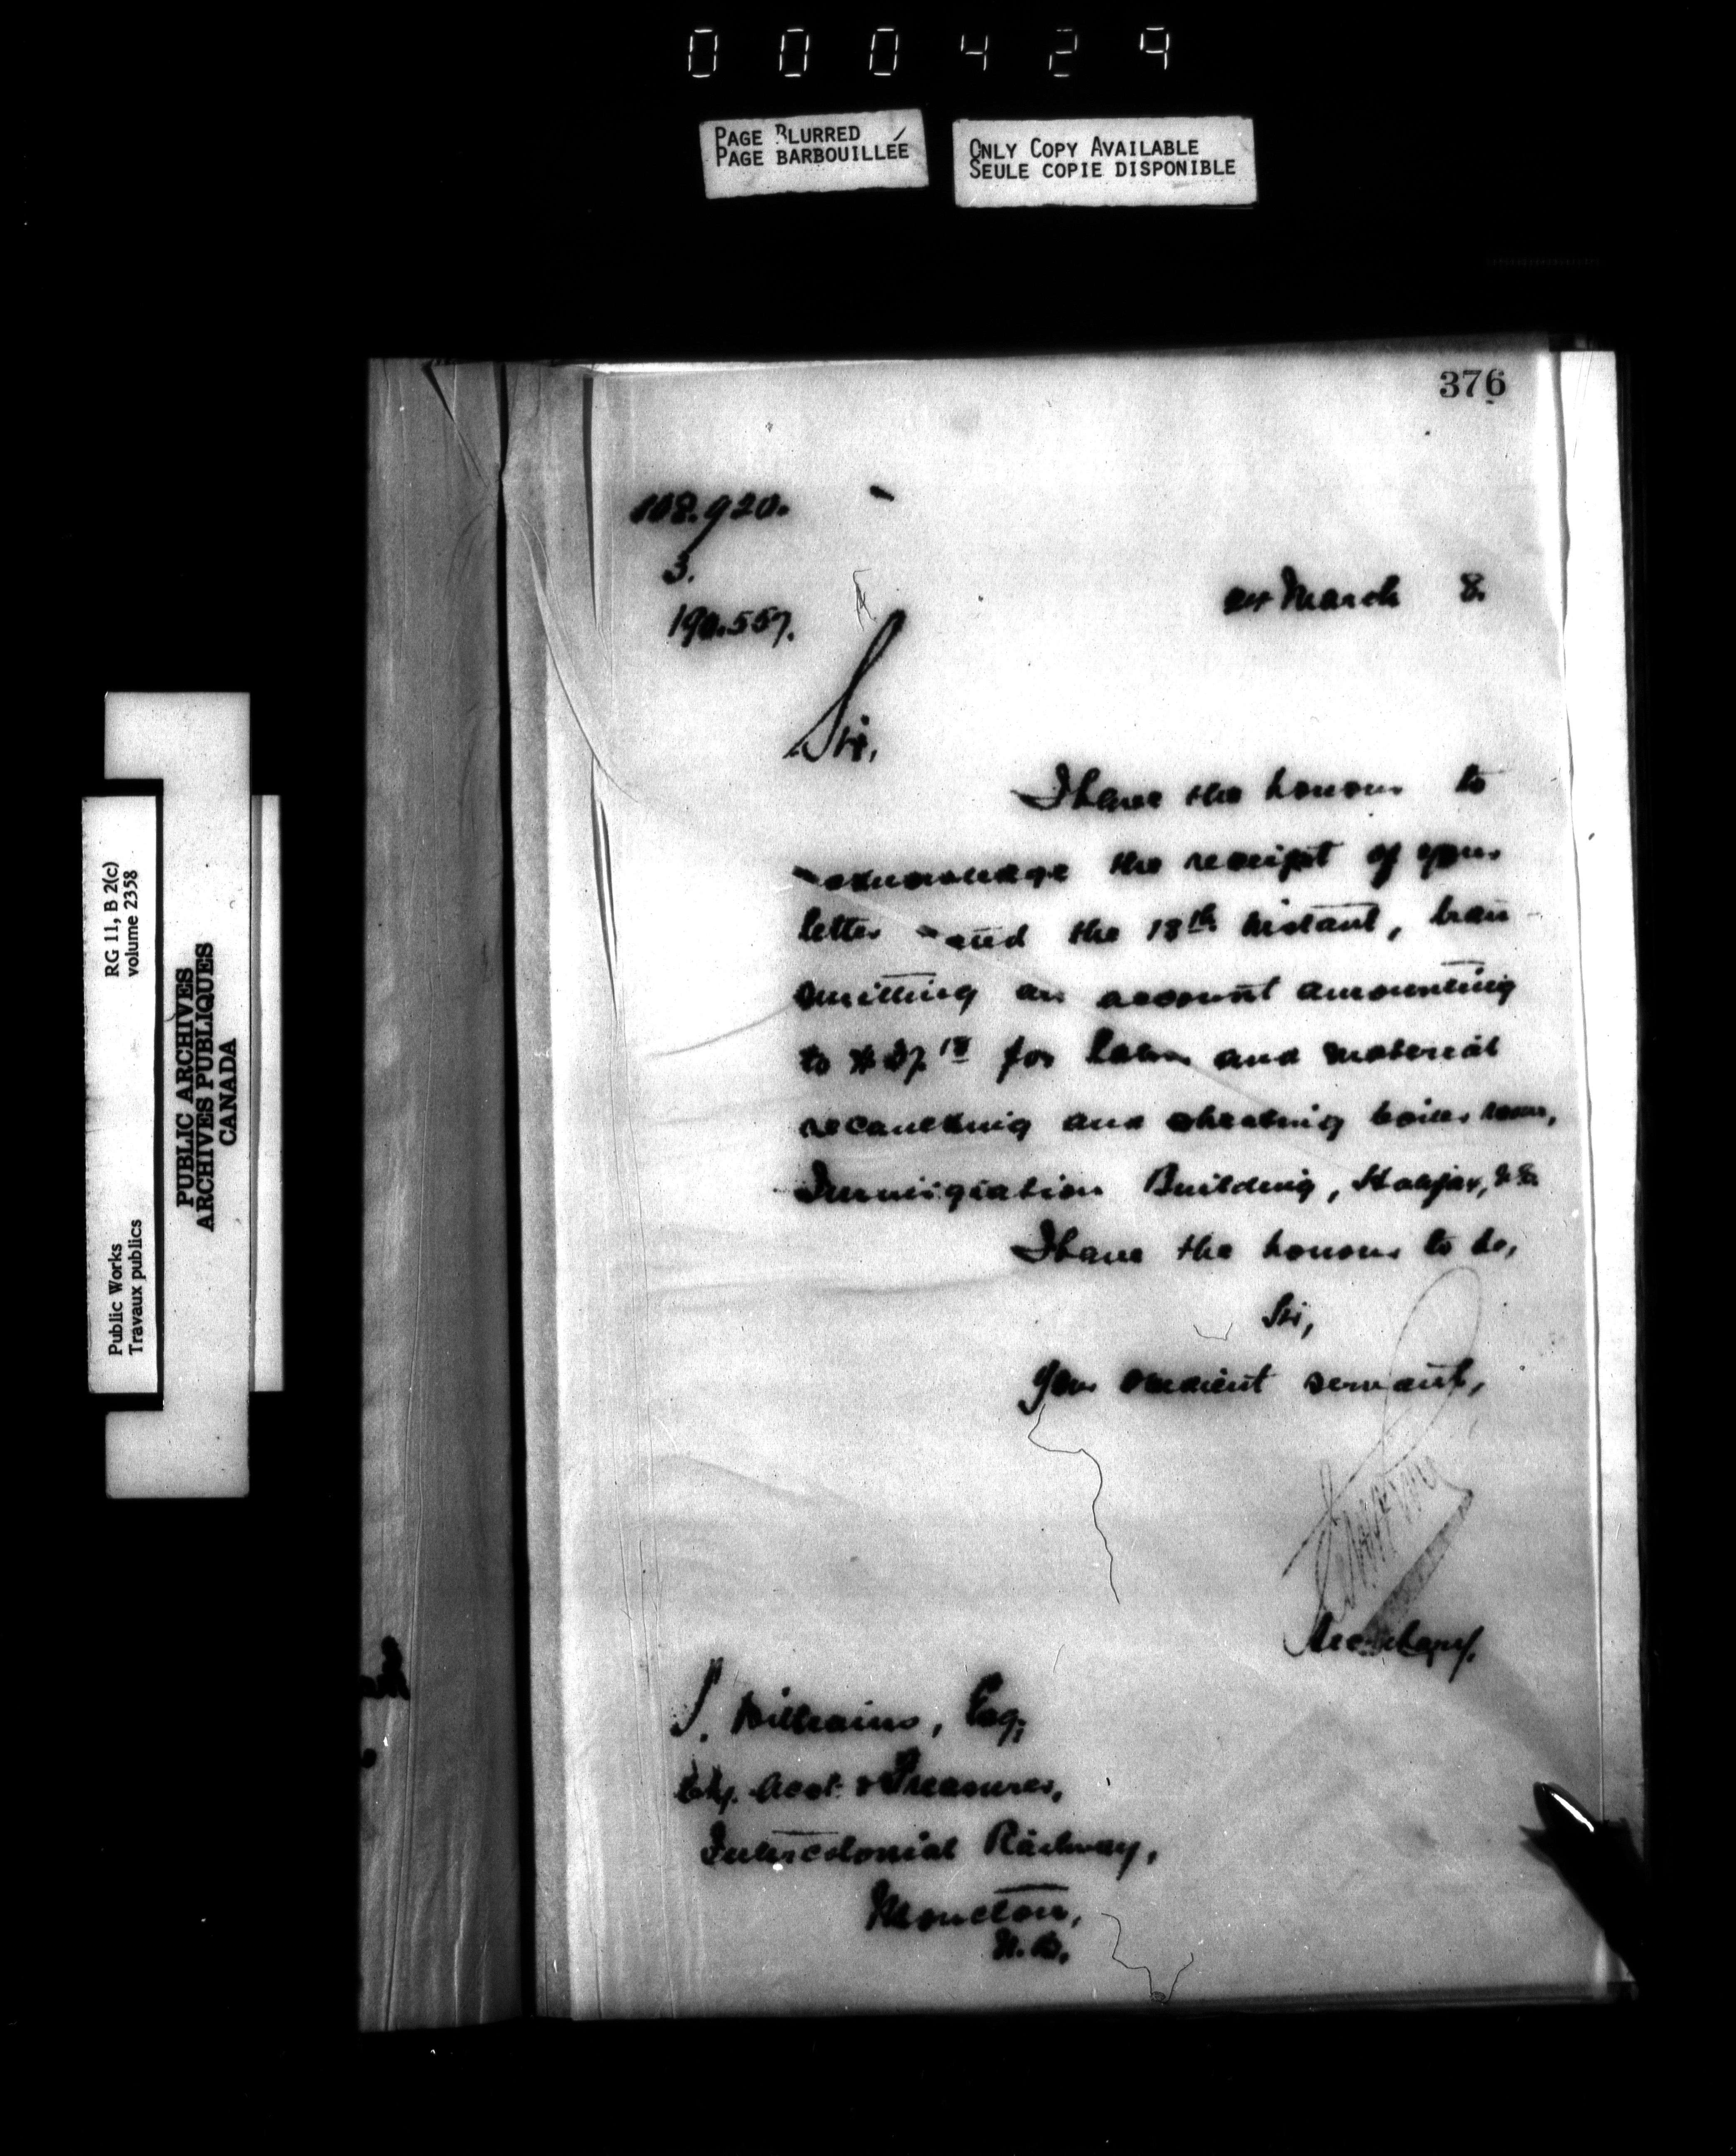 000429
PAGE BLURRED
PAGE BARBOUILLÉE
ONLY COPY AVAILABLE
SEULE COPIE DISPONIBLE
RG 11, B 2(c)
volume 2358
PUBLIC ARCHIVES
ARCHIVES PUBLIQUES
CANADA
Public Works
Travaux publics
376
108.920.
3.
190.557.
24 March 8.
Sir,
I have the honour to
acknowledge the receipt of your
letter dated the 18th instant, tran-
smitting an account amounting
to for labour and material
recaulking and sheating boiler room,
Immigration Building, Halifax, N.S.
I have the honour to be,
Sir,
Your obedient servant,
Secretary.
Williams, Esq;
Chf. Acct. & Treasurer,
Intercolonial Railway,
Moncton,
N.B.